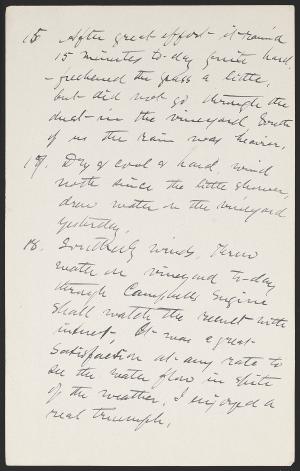 15. After great effort it rained
15 minutes to-day quite hard,
- freshened the grass a little,
but did not go through the
dust - in the vineyard. South
of us the rain was heavier.
17. Dry & cool & hard wind
north since the little shower,
drew water on the vineyard
yesterday.
18. Southerly winds, Threw
water on vineyard to-day
through Campbells Engine
Shall watch the result with
interest. It was a great
Satisfaction at any rate to
see the water flow in spite
of the weather. I enjoyed a
real triumph.